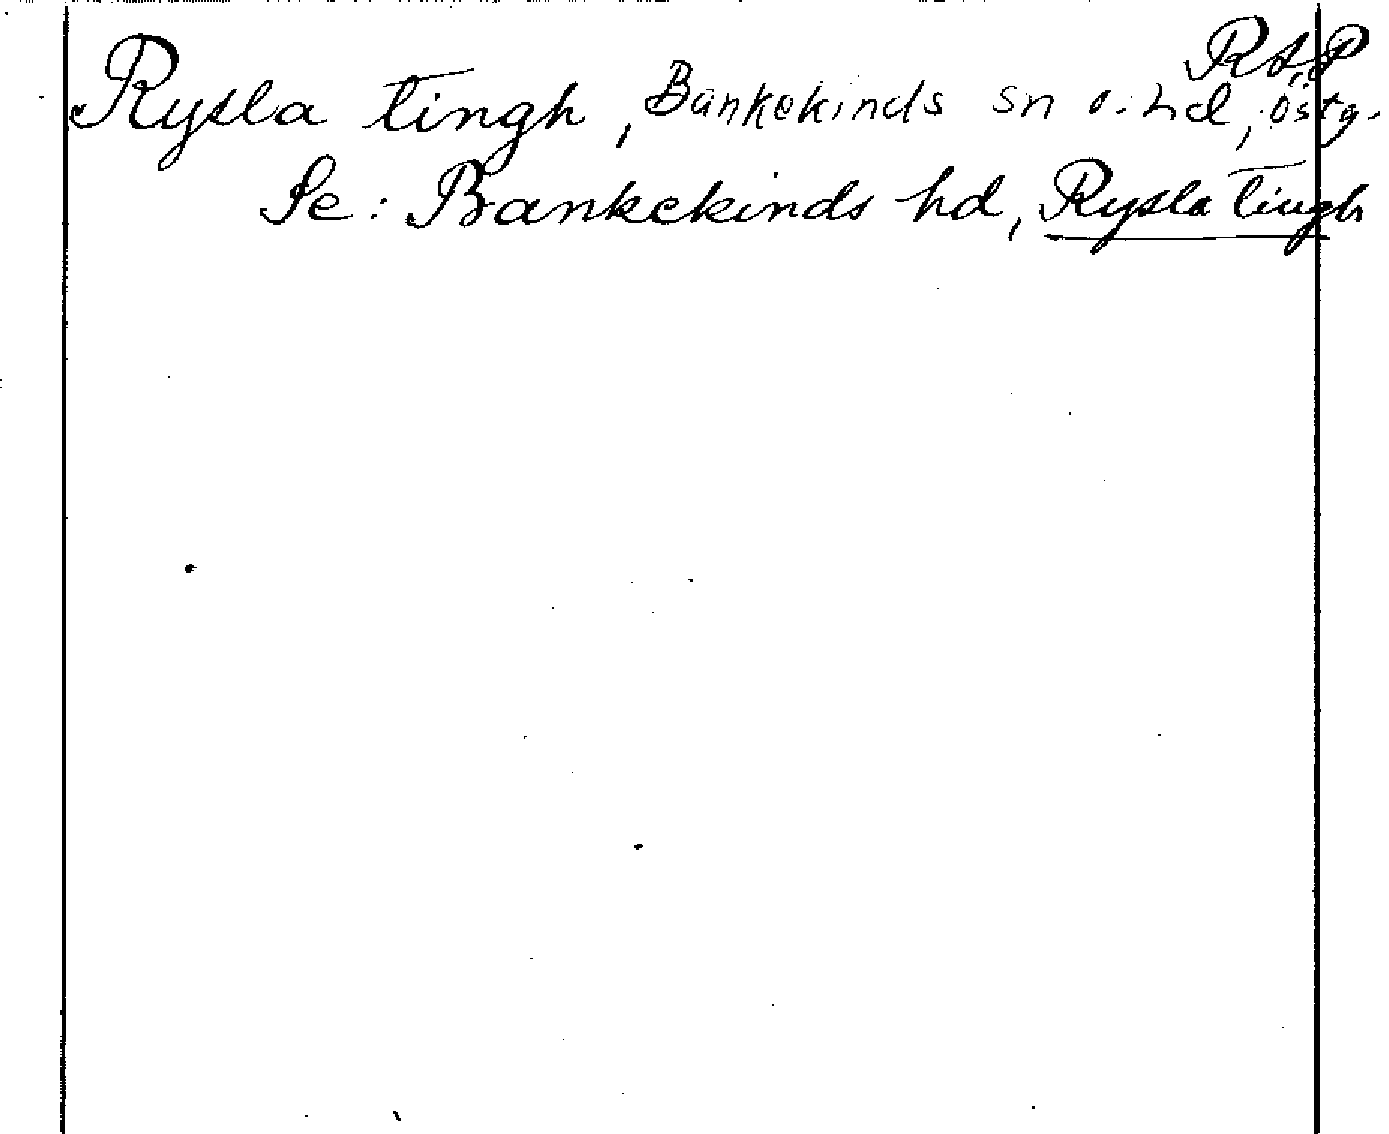 RAP
Rysla tingh, Bankekinds sn o. hd, Östg.
Se: Bankekinds hd, Rysla tingh